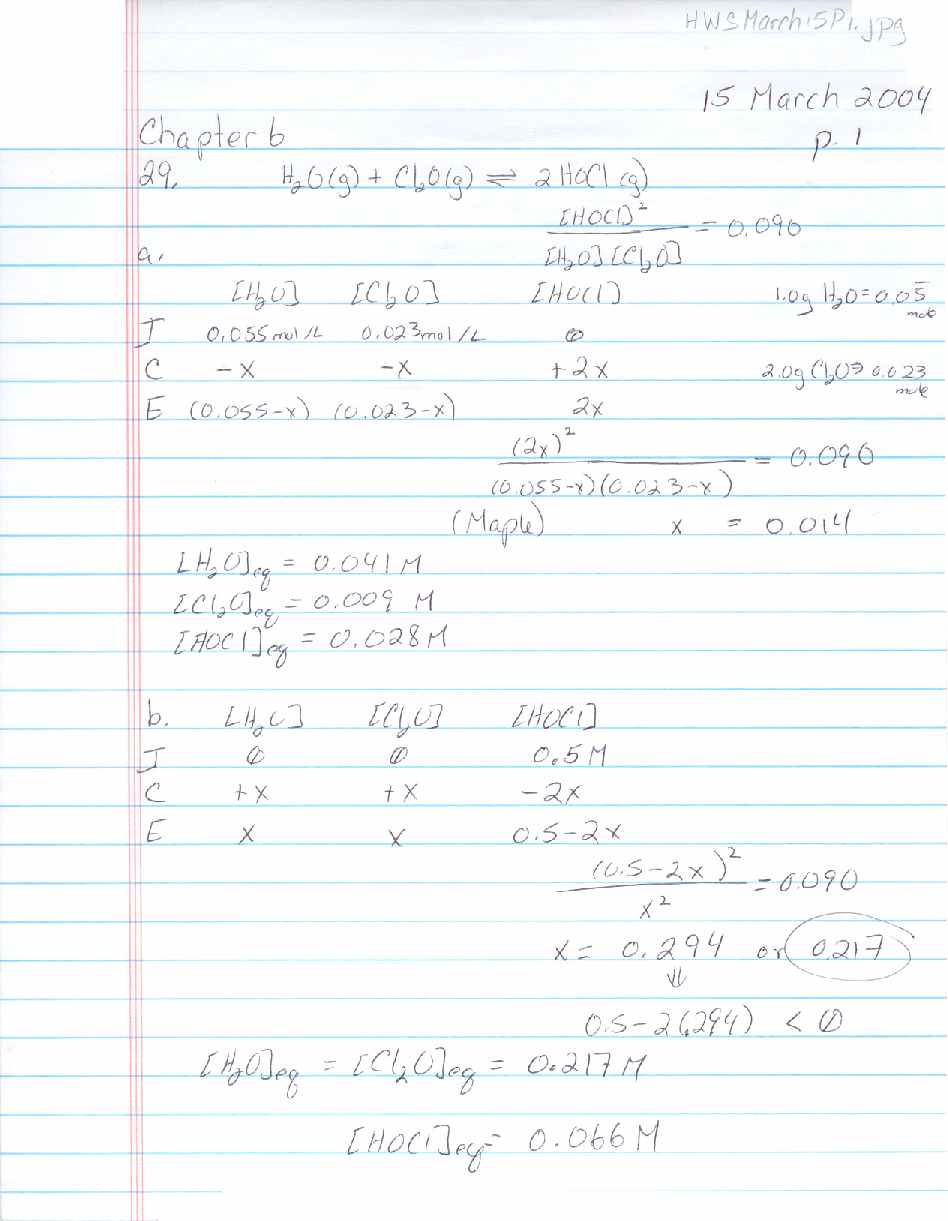 HWSMarch15P1.jpg
15 March 2004
Chapter 6
p. 1
29. H₂O(g) + Cl₂O(g) ⇌ 2HOCl(g)
[HOCl]² / [H₂O][Cl₂O] = 0.090
a.
[H₂O] [Cl₂O] [HOCl] 1.0g H₂O = 0.05̅ mole
I 0.055 mol/L 0.023 mol/L 0
C -x -x +2x 2.0g Cl₂O ⇒ 0.023 mole
E (0.055-x) (0.023-x) 2x
(2x)² / (0.055-x)(0.023-x) = 0.090
(Maple) x = 0.014
[H₂O]eq = 0.041 M
[Cl₂O]eq = 0.009 M
[HOCl]eq = 0.028 M
b. [H₂O] [Cl₂O] [HOCl]
I 0 0 0.5 M
C +x +x -2x
E x x 0.5-2x
(0.5-2x)² / x² = 0.090
x = 0.294 or 0.217
⇓
0.5-2(.294) < 0
[H₂O]eq = [Cl₂O]eq = 0.217 M
[HOCl]eq = 0.066 M